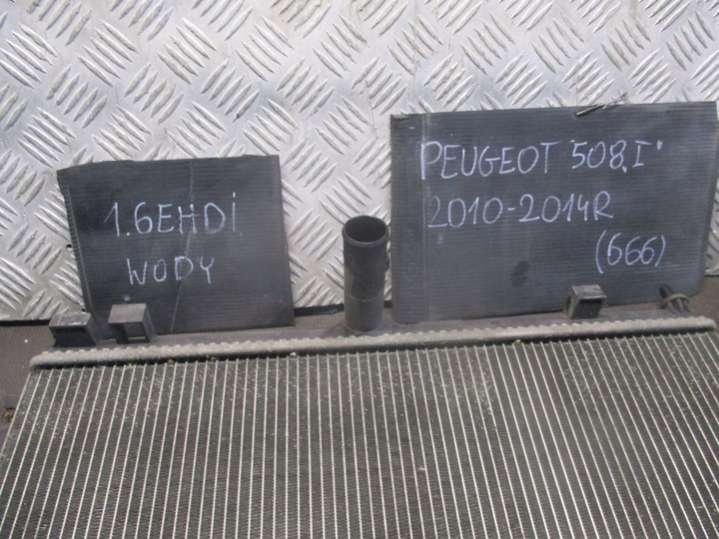 1.6EHDi
WODY
PEUGEOT 508.I'
2010-2014R
(666)